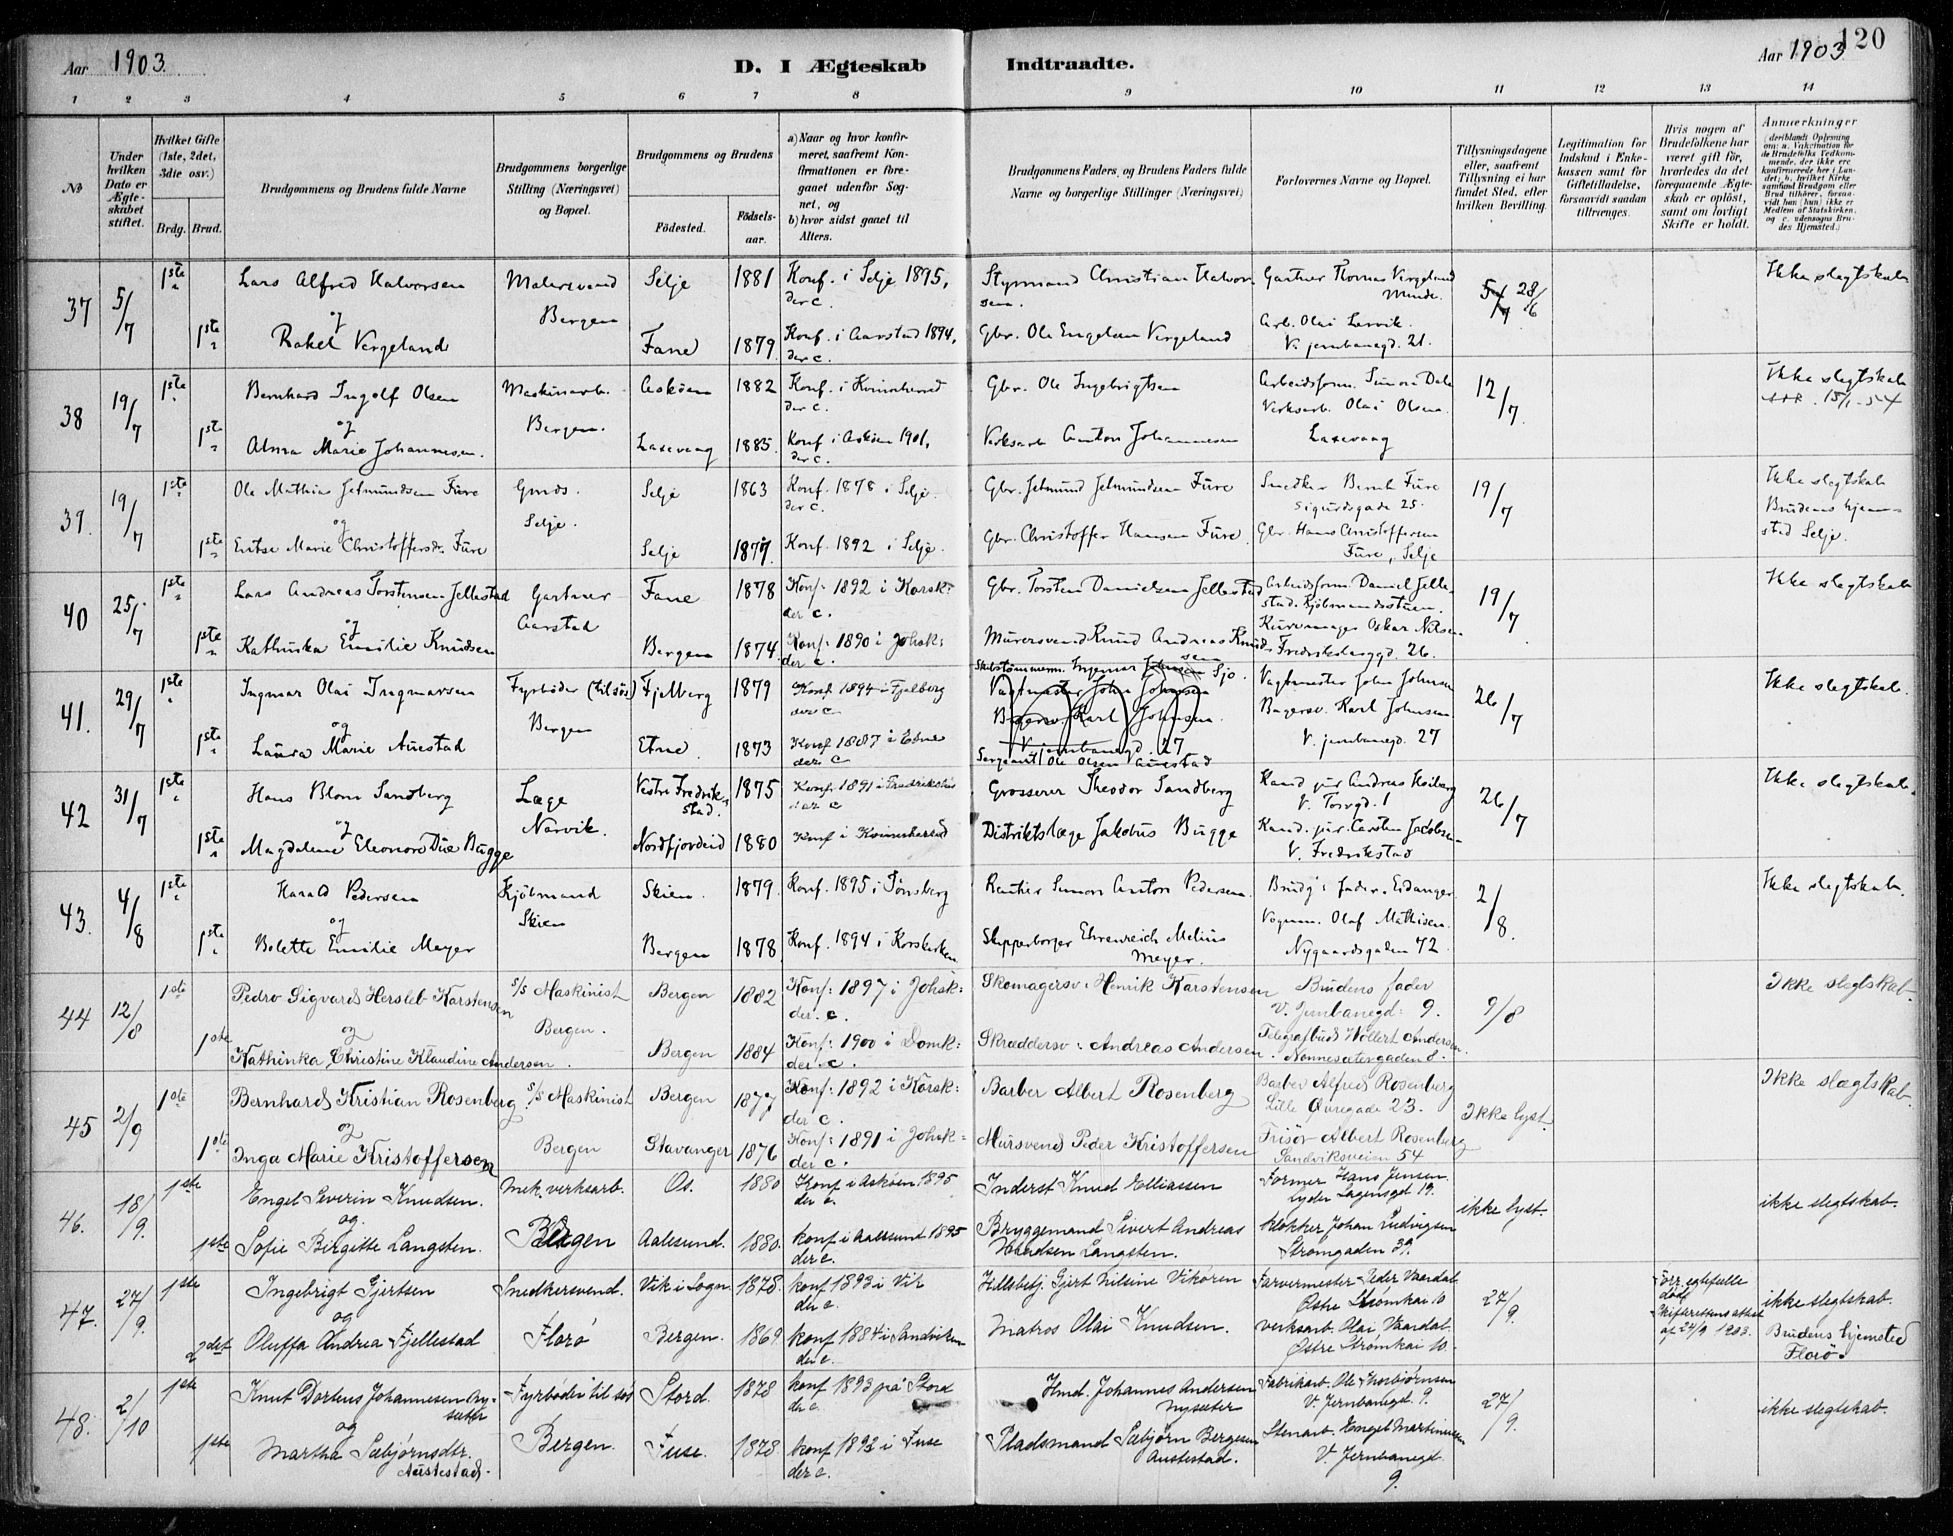 Aar 1903.
D. I Ægteskab Indtraadte.
Aar 1903
120
1 2 3 4 5 6 7 8 9 10 11 12 13 14
No
Under hvilken Dato er Ægteskabet stiftet.
Hvilket Gifte (1ste, 2det, 3die osv.)
Brdg. Brud.
Brudgommens og Brudens fulde Navne
Brudgommens borgerlige Stilling (Næringsvei) og Bopæl.
Brudgommens og Brudens
Födested.
Födsels-aar.
a) Naar og hvor konfirmeret, saafremt Konfirmationen er foregaaet udenfor Sognet, og
b) hvor sidst gaaet til Alters.
Brudgommens Faders, og Brudens Faders fulde Navne og borgerlige Stillinger (Næringsvei)
Forlovernes Navne og Bopæl.
Tillysningsdagene eller, saafremt Tillysning ei har fundet Sted, efter hvilken Bevilling.
Legitimation for Indskud i Enkekassen samt for Giftetilladelse, forsaavidt saadan tiltrænges.
Hvis nogen af Brudefolkene har været gift för, hvorledes da det foregaaende Ægteskab er oplöst, samt om lovligt Skifte er holdt.
Anmærkninger
37 5/7 1ste Lars Alfred Halvorsen Malersvend Selje 1881 Konf. i Selje 1895, Styrmand Christian Halvor- Gartner Thomas Vergeland 28/6 Ikke slegtskab
der c. sen. Minde.
og Bergen
1ste Rakel Vergeland Fane 1879 Konf. i Aarstad 1894, Gbr. Ole Engelsen Vergeland Arb. Olai Larvik.
der c. V. jernbanegd. 21.
38 19/7 1ste Bernhard Ingolf Olsen Maskinarb. Askøen 1882 Konf. i Kvinnherred Gbr. Ole Ingebrigtsen Arbeidsform. Simon Dale 12/7 Ikke slegtskab
der c. Verksarb. Olai Olsen 15/1-54
og Bergen.
1ste Alma Marie Johannesen. Laxevaag 1885 Konf i Askøen 1901, Verksarb Anton Johannesen Laxevaag
der c.
39. 19/7 1ste Ole Mathias Jetmundsen Fure Gmds. Selje 1863 Konf. 1878 i Selje. Gbr. Jetmund Jetmundsen Fure Snedker Bernt Fure 19/7 Ikke slegtskab
der c. Sigurdsgade 25. Brudens hjem-
og Selje. sted Selje.
1ste Marie Christoffersdr. Fure Selje 1877. Konf. 1892 i Selje. Gbr. Christoffer Hansen Fure Gbr. Hans Christoffersen
Fure, Selje
40 25/7 1ste Lars Andreas Torstensen Jellestad Gartner Fane 1878 Konf: 1892 i Korsk: Gbr. Torsten Danielsen Jellestad Arbeidsform Daniel Jelle- 19/7 Ikke slegtskab
og Aarstad der c. stad. Kjöbmandsstuen.
1ste Kathinka Emilie Knudsen Bergen 1874 Konf: 1890 i Johsk: Murersvend Knud Andreas Knud- Kurvmager Oskar Nilsen
der c. sen Fredriksbergd. 26.
41. 29/7 1ste Ingmar Olai Ingmarsen Fyrböder (tilsøs) Fjelberg 1879 Konf 1894 i Fjelberg Skibstömmerm. Ingemar Johnsen Sjo. Vagtmester John Johnsen 26/7 Ikke slegtskab.
der c Vagtmester John Johnsen Bagersv. Karl Johnsen
og Bergen Bagersv. Karl Johnsen.
1ste Laura Marie Auestad Etne 1873 Konf 1887 i Etne V. jernbanegd. 27 V. jernbanegd. 27
der c Sergeant Ole Olsen Auestad
42 31/7 1ste Hans Blom Sandberg Læge Vestre Fredrik- 1875 Konf 1891 i Fredrikshld Grosserer Theodor Sandberg Kand jur Andreas 26/7 Ikke slegtskab.
stad. der c V. Torvgd. 1
og Narvik.
1ste Magdalene Eleonore Due Bugge Nordfjordeid 1880 Konf i Kvinnherred Distriktslæge Jakobus Bugge Kand. jur. Carsten Jacobsen
V. Fredrikstad
43. 4/8 1ste Harald Pedersen Kjöbmand Skien. 1879. Konf. 1895 i Tönsberg Rentier Simon Anton Pedersen. Brudg's fader. Eidanger 2/8. Ikke slegtskab.
og Skien
1ste Bolette Emilie Meyer Bergen 1878 Konf. 1894 i Korskirken Skipperborger Ehrenreich Melius Vognm. Olaf Mathisen
Meyer. Nygaardsgaden 42
44 12/8 1ste Pedro Sigvard Hersleb Karstensen s/s Maskinist Bergen 1882 Konf: 1897 i Johsk: Skomagersv: Henrik Karstensen Brudens fader 9/8 Ikke slegtskab.
og Bergen. der. c. V. Jernbanegd: 9.
1ste Kathinka Christine Klaudine Andersen. Bergen 1884 Konf: 1900 i Domk: Skræddersv: Andreas Andersen Telegrafbud Wollert Andersen.
der. c. Nonnesætergaden 8.
45 2/9 1ste Bernhard Kristian Rosenberg s/s Maskinist Bergen 1877 Konf: 1892 i Korsk: Barber Albert Rosenberg Barber Alfred Rosenberg Ikke lyst. Ikke slægtskab.
og der c. Lille Øvregade 23.
1ste Inga Marie Kristoffersen Bergen Stavanger 1876 Konf: 1891 i Johsk: Mursvend Peder Kristoffersen Frisør Albert Rosenberg
der c. Sandviksveien 54
46. 18/9. 1ste Engel Severin Knudsen. Mek. verksarb. Os. 1880 Konf i Askøen 1895 Inderst Knud Elliassen Former Hans Jensen ikke lyst. ikke slegtskab.
og der c. Lyder Sagensgd 19.
1ste Sofie Birgitte Langsten. Bergen Aalesund. 1880. konf i Aalesund 1895 Bryggemand Sivert Andreas klokker Johan Ludvigsen
der c. Langsten. Strømgaden 39.
47. 27/9. 1ste Ingebrigt Gjertsen Snedkersvend. Vik i Sogn 1878. konf 1893 i Vik Gjert Nilsine Vikøren Farvermester Peder Vaardal 27/9. ikke slegtskab.
og der c. Østre Strømkai 10 død
2det Oluffa Andrea Fjellestad Florø Bergen. 1869 konf 1884 i Sandviken Matros Olai Knudsen. verksarb. Olai Vaardal Skifterettens attest Brudens hjemsted
der c. Østre Strømkai 10. af 24/9 1903. Florø.
48. 2/10 1ste Knut Dortens Johannesen Ny- Fyrbøder til søs Stord. 1878 konf 1893 på Stord Hmd. Johannes Andersen Fabrikarb. Ole Thorbjørnsen 27/9. ikke slegtskab.
sæter der c. Nysæter V. Jernbanegd 9.
og
1ste Martha Sæbjørnsdtr. Bergen. Fuse. 1878 konf 1893 i Fuse Pladsmand Sæbjørn Bergesen Stenarb. Engel Martinusen
Austestad. der c. Austestad. V. Jernbanegd
9.